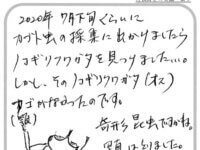 2020年 7月下旬くらいに
カブト虫の採集に出かけましたら
ノコギリクワガタを見つけました…。
しかし、そのノコギリクワガタ(オス)
なのです。
(頭)
奇形昆虫ですかね。
はりました。